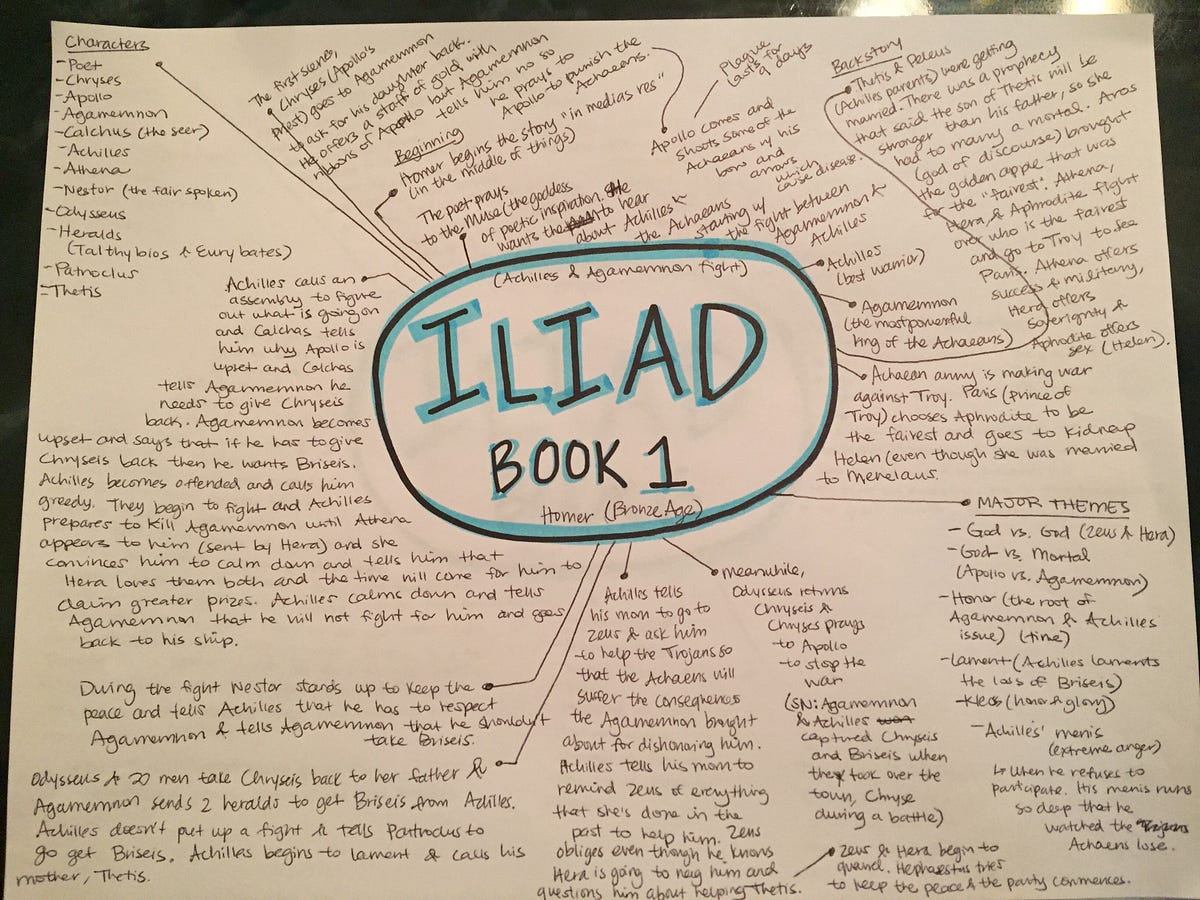 Characters
- Poet
- Chryses
- Apollo
- Agamemnon
- Calchus (the seer)
- Achilles
- Athena
- Nestor (the fair spoken)
- Odysseus
- Heralds
(Talthybios & Eurybates)
- Patroclus
- Thetis
The first scene,
Chryses (Apollo's
priest) goes to Agamemnon
to ask for his daughter back.
He offers a staff of gold with
ribbons of Apollo but Agamemnon
tells him no so
he prays to
Apollo to punish the
Achaeans.
Beginning
Homer begins the story "in medias res"
(in the middle of things)
The poet prays
to the Muse (the goddess
of poetic inspiration. She
wants to hear
about Achilles &
the Achaeans
starting w/
the fight between
Agamemnon &
Achilles
Plague
lasts for
9 days
Apollo comes and
shoots some of the
Achaeans w/ his
bow and
arrows
which
cause disease.
Backstory
Thetis & Peleus
(Achilles parents) were getting
married. There was a prophecy
that said the son of Thetis will be
stronger than his father, so she
had to marry a mortal. Aros
(god of discourse) brought
the golden apple that was
for the "fairest". Athena,
Hera, & Aphrodite fight
over who is the fairest
and go to Troy to see
Paris. Athena offers
success & military,
Hera offers
sovereignty &
Aphrodite offers
sex (Helen).
(Achilles & Agamemnon fight)
ILIAD
BOOK 1
Homer (Bronze Age)
Achilles
(best warrior)
Agamemnon
(the most powerful
king of the Achaeans)
Achaean army is making war
against Troy. Paris (prince of
Troy) chooses Aphrodite to be
the fairest and goes to kidnap
Helen (even though she was married
to Menelaus.
Achilles calls an
assembly to figure
out what is going on
and Calchas tells
him why Apollo is
upset and Calchas
tells Agamemnon he
needs to give Chryseis
back. Agamemnon becomes
upset and says that if he has to give
Chryseis back then he wants Briseis.
Achilles becomes offended and calls him
greedy. They begin to fight and Achilles
prepares to kill Agamemnon until Athena
appears to him (sent by Hera) and she
convinces him to calm down and tells him that
Hera loves them both and the time will come for him to
claim greater prizes. Achilles calms down and tells
Agamemnon that he will not fight for him and goes
back to his ship.
During the fight Nestor stands up to keep the
peace and tells Achilles that he has to respect
Agamemnon & tells Agamemnon that he shouldn't
take Briseis.
Odysseus & 20 men take Chryseis back to her father &
Agamemnon sends 2 heralds to get Briseis from Achilles.
Achilles doesn't put up a fight & tells Patroclus to
go get Briseis. Achilles begins to lament & calls his
mother, Thetis.
Achilles tells
his mom to go to
Zeus & ask him
to help the Trojans so
that the Achaens will
suffer the consequences
the Agamemnon brought
about for dishonoring him.
Achilles tells his mom to
remind Zeus of everything
that she's done in the
past to help him. Zeus
obliges even though he knows
Hera is going to nag him and
questions him about helping Thetis.
Meanwhile,
Odysseus returns
Chryseis &
Chryses prays
to Apollo
to stop the
war
(SN: Agamemnon
& Achilles
captured Chryseis
and Briseis when
they took over the
town, Chryse
during a battle)
Zeus & Hera begin to
quarrel. Hephaestus tries
to keep the peace & the party commences.
MAJOR THEMES
- God vs. God (Zeus & Hera)
- God vs. Mortal
(Apollo vs. Agamemnon)
- Honor (the root of
Agamemnon & Achilles
issue) (time)
- Lament (Achilles laments
the loss of Briseis)
- Kleos (honor & glory)
- Achilles' menis
(extreme anger)
↳ When he refuses to
participate. His menis runs
so deep that he
watched the
Achaens lose.